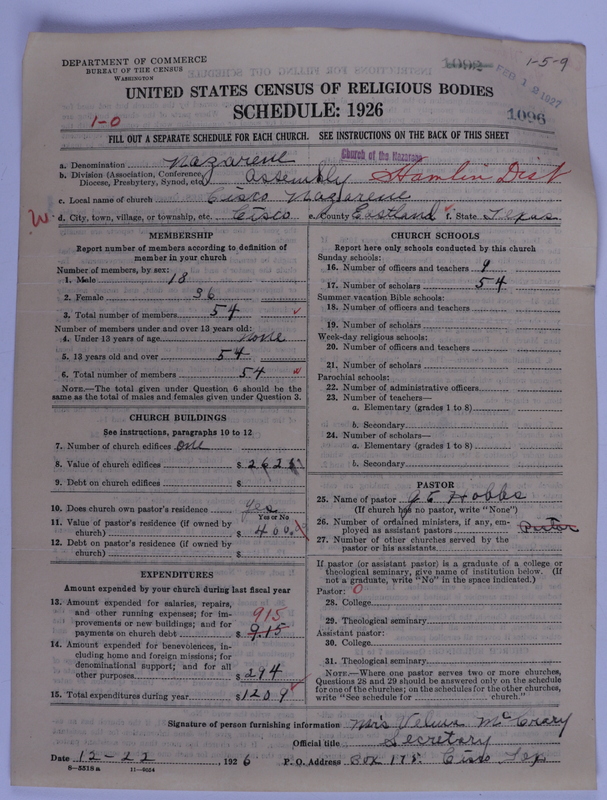 DEPARTMENT OF COMMERCE
BUREAU OF THE CENSUS
WASHINGTON
1092
FEB 12 1927
1-5-9
UNITED STATES CENSUS OF RELIGIOUS BODIES
SCHEDULE: 1926
1096
1-0
FILL OUT A SEPARATE SCHEDULE FOR EACH CHURCH. SEE INSTRUCTIONS ON THE BACK OF THIS SHEET
Church of the Nazarene
a. Denomination Nazarene
b. Division (Association, Conference, Diocese, Presbytery, Synod, etc.) Assembly Hamlin Dist
c. Local name of church Cisco Nazarene
d. City, town, village, or township, etc. Cisco e. County Eastland f. State Texas
MEMBERSHIP
Report number of members according to definition of
member in your church
Number of members, by sex:
1. Male 18
2. Female 36
3. Total number of members 54
Number of members under and over 13 years old:
4. Under 13 years of age none
5. 13 years old and over 54
6. Total number of members 54
NOTE.—The total given under Question 6 should be the
same as the total of males and females given under Question 3.
CHURCH BUILDINGS
See instructions, paragraphs 10 to 12
7. Number of church edifices one
8. Value of church edifices $ 2625
9. Debt on church edifices $
10. Does church own pastor's residence yes
Yes or No
11. Value of pastor's residence (if owned by
church) $ 400
12. Debt on pastor's residence (if owned by
church) $
EXPENDITURES
Amount expended by your church during last fiscal year
13. Amount expended for salaries, repairs,
and other running expenses; for im-
provements or new buildings; and for 915
payments on church debt $ 9.15
14. Amount expended for benevolences, in-
cluding home and foreign missions; for
denominational support; and for all
other purposes $ 294
15. Total expenditures during year $ 1209
CHURCH SCHOOLS
Report here only schools conducted by this church
Sunday schools:
16. Number of officers and teachers 9
17. Number of scholars 54
Summer vacation Bible schools:
18. Number of officers and teachers
19. Number of scholars
Week-day religious schools:
20. Number of officers and teachers
21. Number of scholars
Parochial schools:
22. Number of administrative officers
23. Number of teachers—
a. Elementary (grades 1 to 8)
b. Secondary
24. Number of scholars—
a. Elementary (grades 1 to 8)
b. Secondary
PASTOR
25. Name of pastor Hobbs
(If church has no pastor, write "None")
26. Number of ordained ministers, if any, em-
ployed as assistant pastors Pastor
27. Number of other churches served by the
pastor or his assistants
If pastor (or assistant pastor) is a graduate of a college or
theological seminary, give name of institution below. (If
not a graduate, write "No" in the space indicated.)
Pastor: 0
28. College
29. Theological seminary
Assistant pastor:
30. College
31. Theological seminary
NOTE.—Where one pastor serves two or more churches,
Questions 28 and 29 should be answered only on the schedule
for one of the churches; on the schedules for the other churches,
write "See schedule for church."
Signature of person furnishing information Mrs Velma McCrary
Official title Secretary
Date 12-22 1926 P. O. Address Box 175 Cisco Tex
8-5518a 11-8654